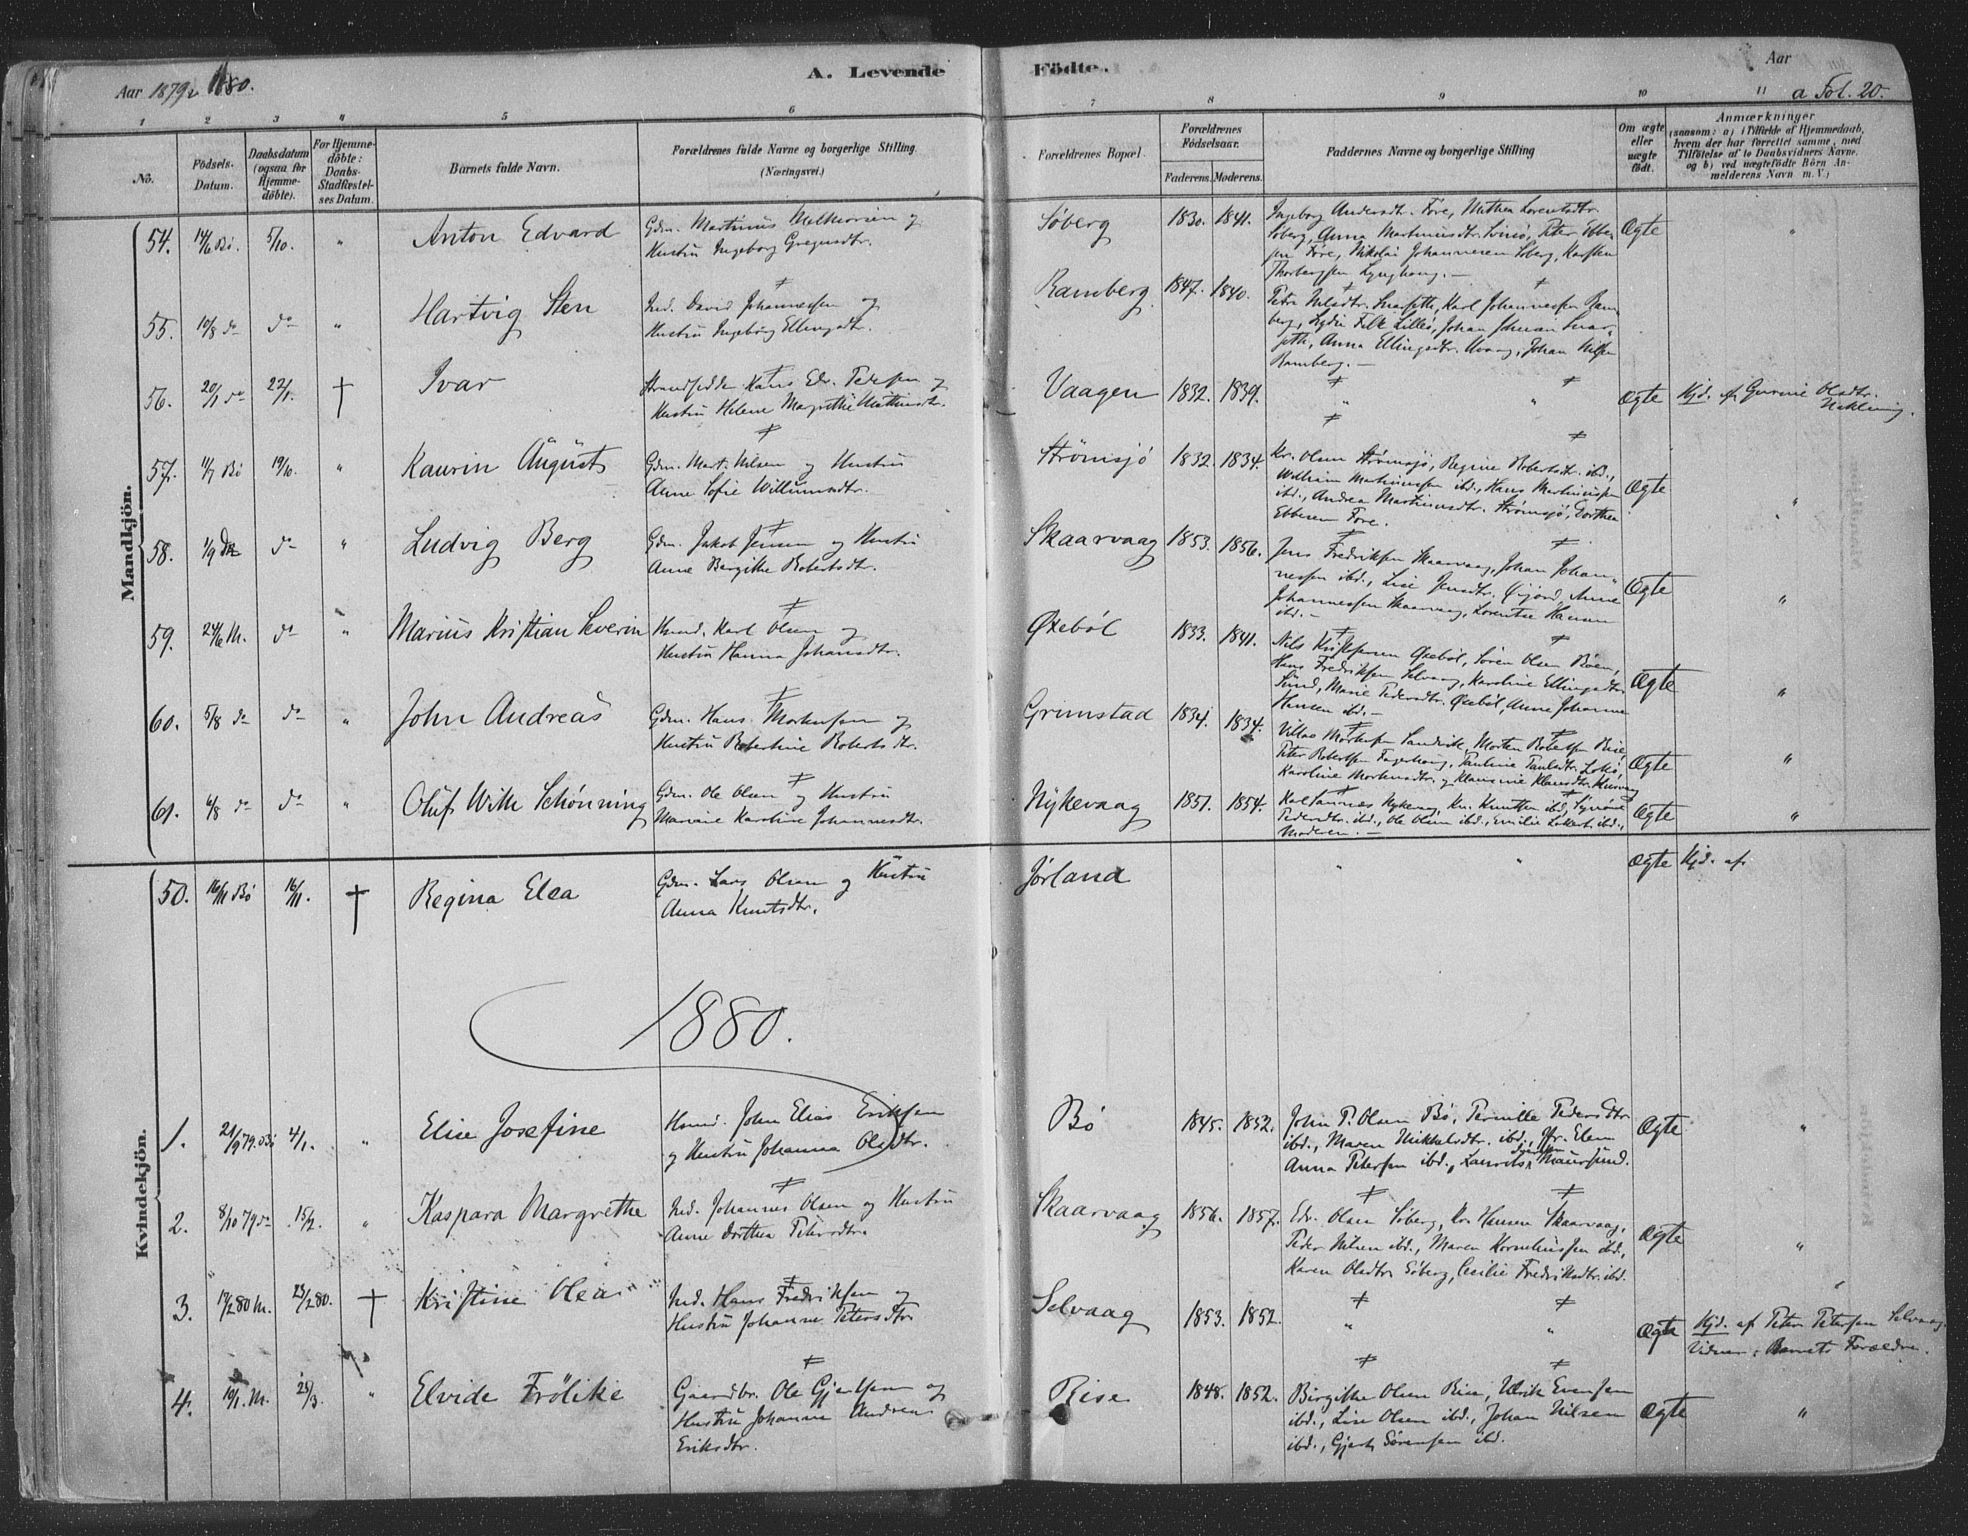 Aar 1879 & 1880.
A. Levende
Födte.
Aar
a Fol. 20.
1 2 3 4 5 6 7 8 9 10 11
No.
Födsels-Datum.
Daabsdatum (ogsaa for Hjemme-döbte).
For Hjemme-döbte: Daabs-Stadfæstel-ses Datum.
Barnets fulde Navn.
Forældrenes fulde Navne og borgerlige Stilling (Næringsvei.)
Forældrenes Bopæl.
Forældrenes Födselsaar.
Faderens. Moderens.
Faddernes Navne og borgerlige Stilling
Om ægte eller uægte födt.
Anmærkninger
(saasom: a) i Tilfælde af Hjemmedaab, hvem der har forrettet samme, med Tilföielse af to Daabsvidners Navne. og b) ved uægtefödte Börn An-melderens Navn m. V.)
Mandkjön.
54. 14/6 Bö. 5/10. " Anton Edvard
Gdm. Martinus Melkiorsen og
Hustru Ingeborg Gregusdtr.
Söberg 1830. 1841.
Ingeborg Andersdtr. Före, Mithea Lorentsdtr.
Söberg, Anna Martinusdtr. Svinö, Peter Ebbe-
sen Före, Nikolai Johannesen Söberg, Karsten
Thorbergsen Lynghaug. —
Ægte "
55. 10/8 do do " Hartvig Sten
Ind. David Johannessen og
Hustru Ingeborg Ellingsdtr.
Ramberg 1847. 1840.
Petra Nilsdtr. Snarseth, Karl Johannessen Ram-
berg, Lydia Falk Lillö, Johan Johnsen Snar-
seth, Anna Ellingsdtr. Vaag, Johan Nilsen
Ramberg. —
56. 20/1 do 22/1. † Ivar
Strandsidder Hans Edv. Pedersen og
Hustru Helene Margrethe
Vaagen 1832. 1839. " "
Ægte Hjd. af Gurine Olsdtr.
57. 11/7 Bö 19/10. " Kaurin August
Gdm. Mart. Nilsen og Hustru
Anne Sofie Willumsdtr.
Strömsjö 1832. 1834.
Kr. Olsen Strömsjö, Regine Robertsdtr. ibd.,
William Martinussen ibd., Hans Martinussen
ibd., Andrea Martinusdtr. Strömsjö, Dorthea
Ebbesen Före.
Ægte "
58. 1/9 do " Ludvig Berg
Gdm. Jakob Jensen og Hustru
Anne Bergithe Robertsdtr.
Skaarvaag 1853. 1856.
Jens Fredriksen Skaarvaag, Johan Johan-
nessen ibd., Lise Jensdtr. Anne
Johannessen Skaarvaag, Lorentse Hansen
ibd. —
Ægte "
59. 24/6 M. do " Marius Kristian Severin
Husmd. Karl Olsen og
Hustru Hanna Johansdtr.
Öxeböl 1833. 1841.
Nils Kristensen Öxeböl, Sören Olsen Böen,
Hans Fredriksen Selvaag, Karoline Ellingsdtr.
Sund, Marie Pedersdtr. Öxeböl, Anne Johanna
Hansen ibd. —
Ægte "
60. 5/8 do do " John Andreas
Gdm. Hans Mortensen og
Hustru Robertine Roberts dtr.
Grimstad 1834. 1834.
Villas Mortensen Sandvik, Morten Robertsen Rise,
Peter Robertsen Fagerhaug, Pauline Paulsdtr.
Karoline Mortensdtr. og Klausine Klausdtr.
Ægte "
61. 4/8 do do " Oluf With Schönning
Gdm. Ole Olsen og Hustru
Mariane Karoline Johannesdtr.
Nykevaag 1851. 1854.
Karl Nykevaag, Kn. Knutsen ibd.,
Pedersdtr. ibd., Ole Olsen ibd., Emilie Lokkert ibd.,
Moderen. —
Ægte "
50. 16/11 Bö 16/11. † Regina Elea
Gdm. Lars Olsen og Hustru
Anna Knutsdtr.
Jörland " "
Ægte Hjd. af
1880.
Kvindekjön.
1. 21/9 79. Bö 4/1. " Elise Josefine
Husmd. John Elias Eriksen
og Hustru Johanna Olsdtr.
Bö 1845. 1852.
John P. Olsen Bö, Pernille Pedersdtr
ibd., Maren Mikkelsdtr. ibd., Jfr. Elen
Anna Petersen ibd., Laurits Maursund.
Ægte "
2. 8/10 79 do 15/2. " Kaspara Margrethe
Ind. Johannes Olsen og Hustru
Anne Dorthea Petersdtr.
Skaarvaag 1856. 1857.
Edv. Olsen Söberg, Kr. Hansen Skaarvaag,
Peder Nilsen ibd., Maren Korneliussen ibd.,
Karen Olsdtr. Söberg, Cecilie Fredriksdtr. ibd.
Ægte "
3. 17/2 80 M. 23/2 80. † Kristine Olea
Ind. Hans Fredriksen og
Hustru Johanne Petersdtr.
Selvaag 1853. 1852. " "
Ægte Hjd. af Peter Petersen Selvaag.
Vidner: Barnets Forældre.
4. 19/1. M. 25/3. " Elvide Frölike
Gaardbr. Ole Gjertsen og
Hustru Johanna Andrea
Eriksdtr.
Rise 1848. 1852.
Birgithe Olsen Rise, Ulrik Evensen
ibd., Lise Olsen ibd., Johan Nilsen
ibd., Gjert Sörensen ibd.
Ægte "